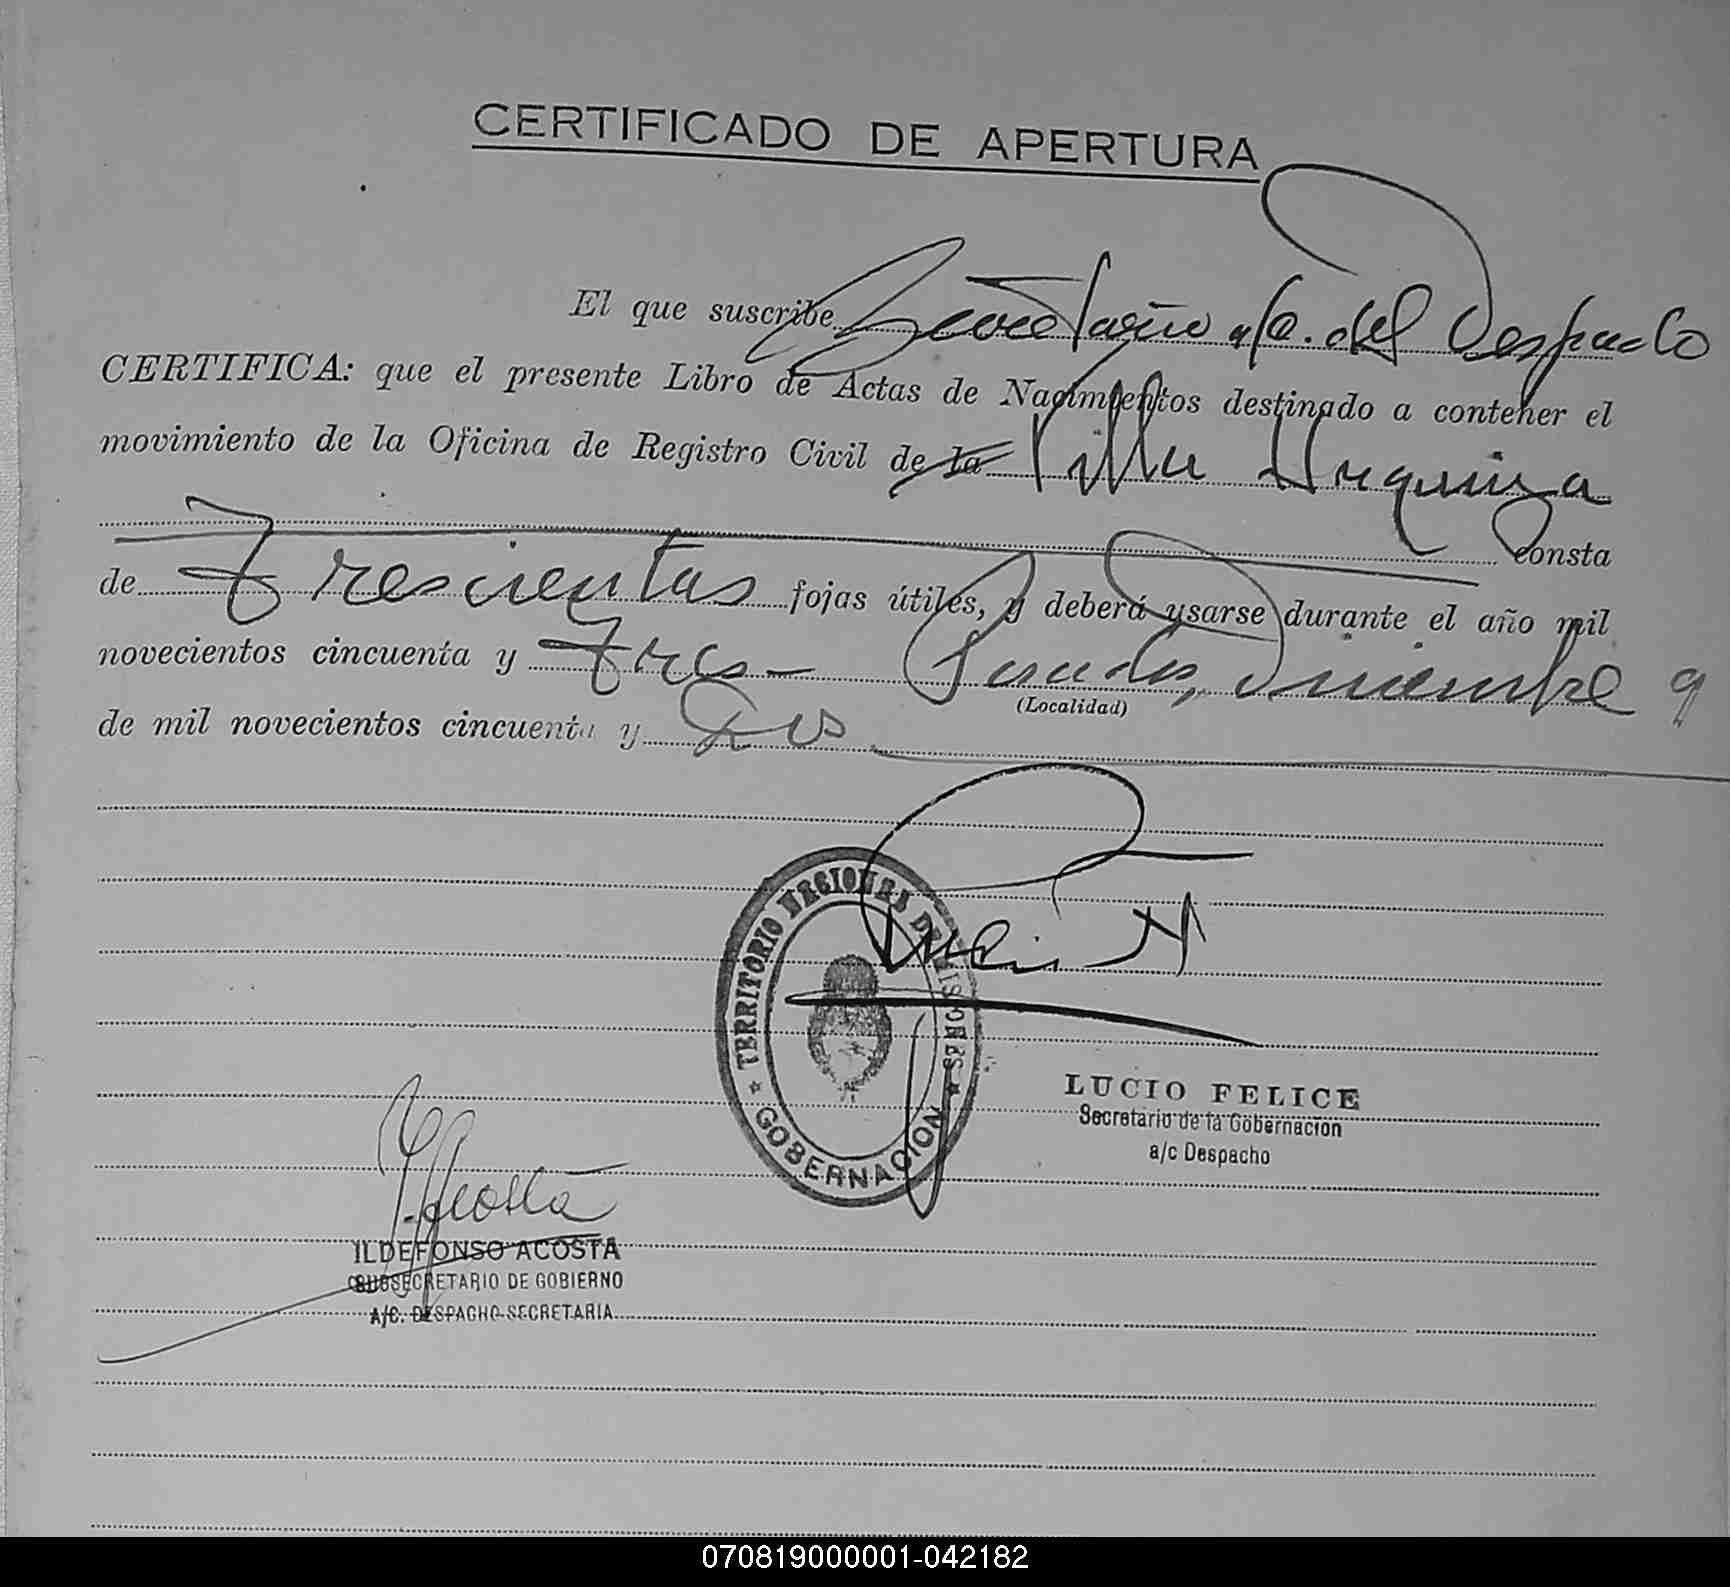 CERTIFICADO DE APERTURA
El que suscribe Secretario a/c. del Despacho
CERTIFICA: que el presente Libro de Actas de Nacimientos destinado a contener el
movimiento de la Oficina de Registro Civil de la Villa Urquiza
consta
de Trescientas fojas útiles, y deberá usarse durante el año mil
novecientos cincuenta y tres Posadas, Diciembre 9
(Localidad)
de mil novecientos cincuenta y dos
TERRITORIO NACIONAL DE MISIONES
GOBERNACION
LUCIO FELICE
Secretario de la Gobernación
a/c Despacho
I. Acosta
ILDEFONSO ACOSTA
SUBSECRETARIO DE GOBIERNO
A/C. DESPACHO SECRETARIA
070819000001-042182